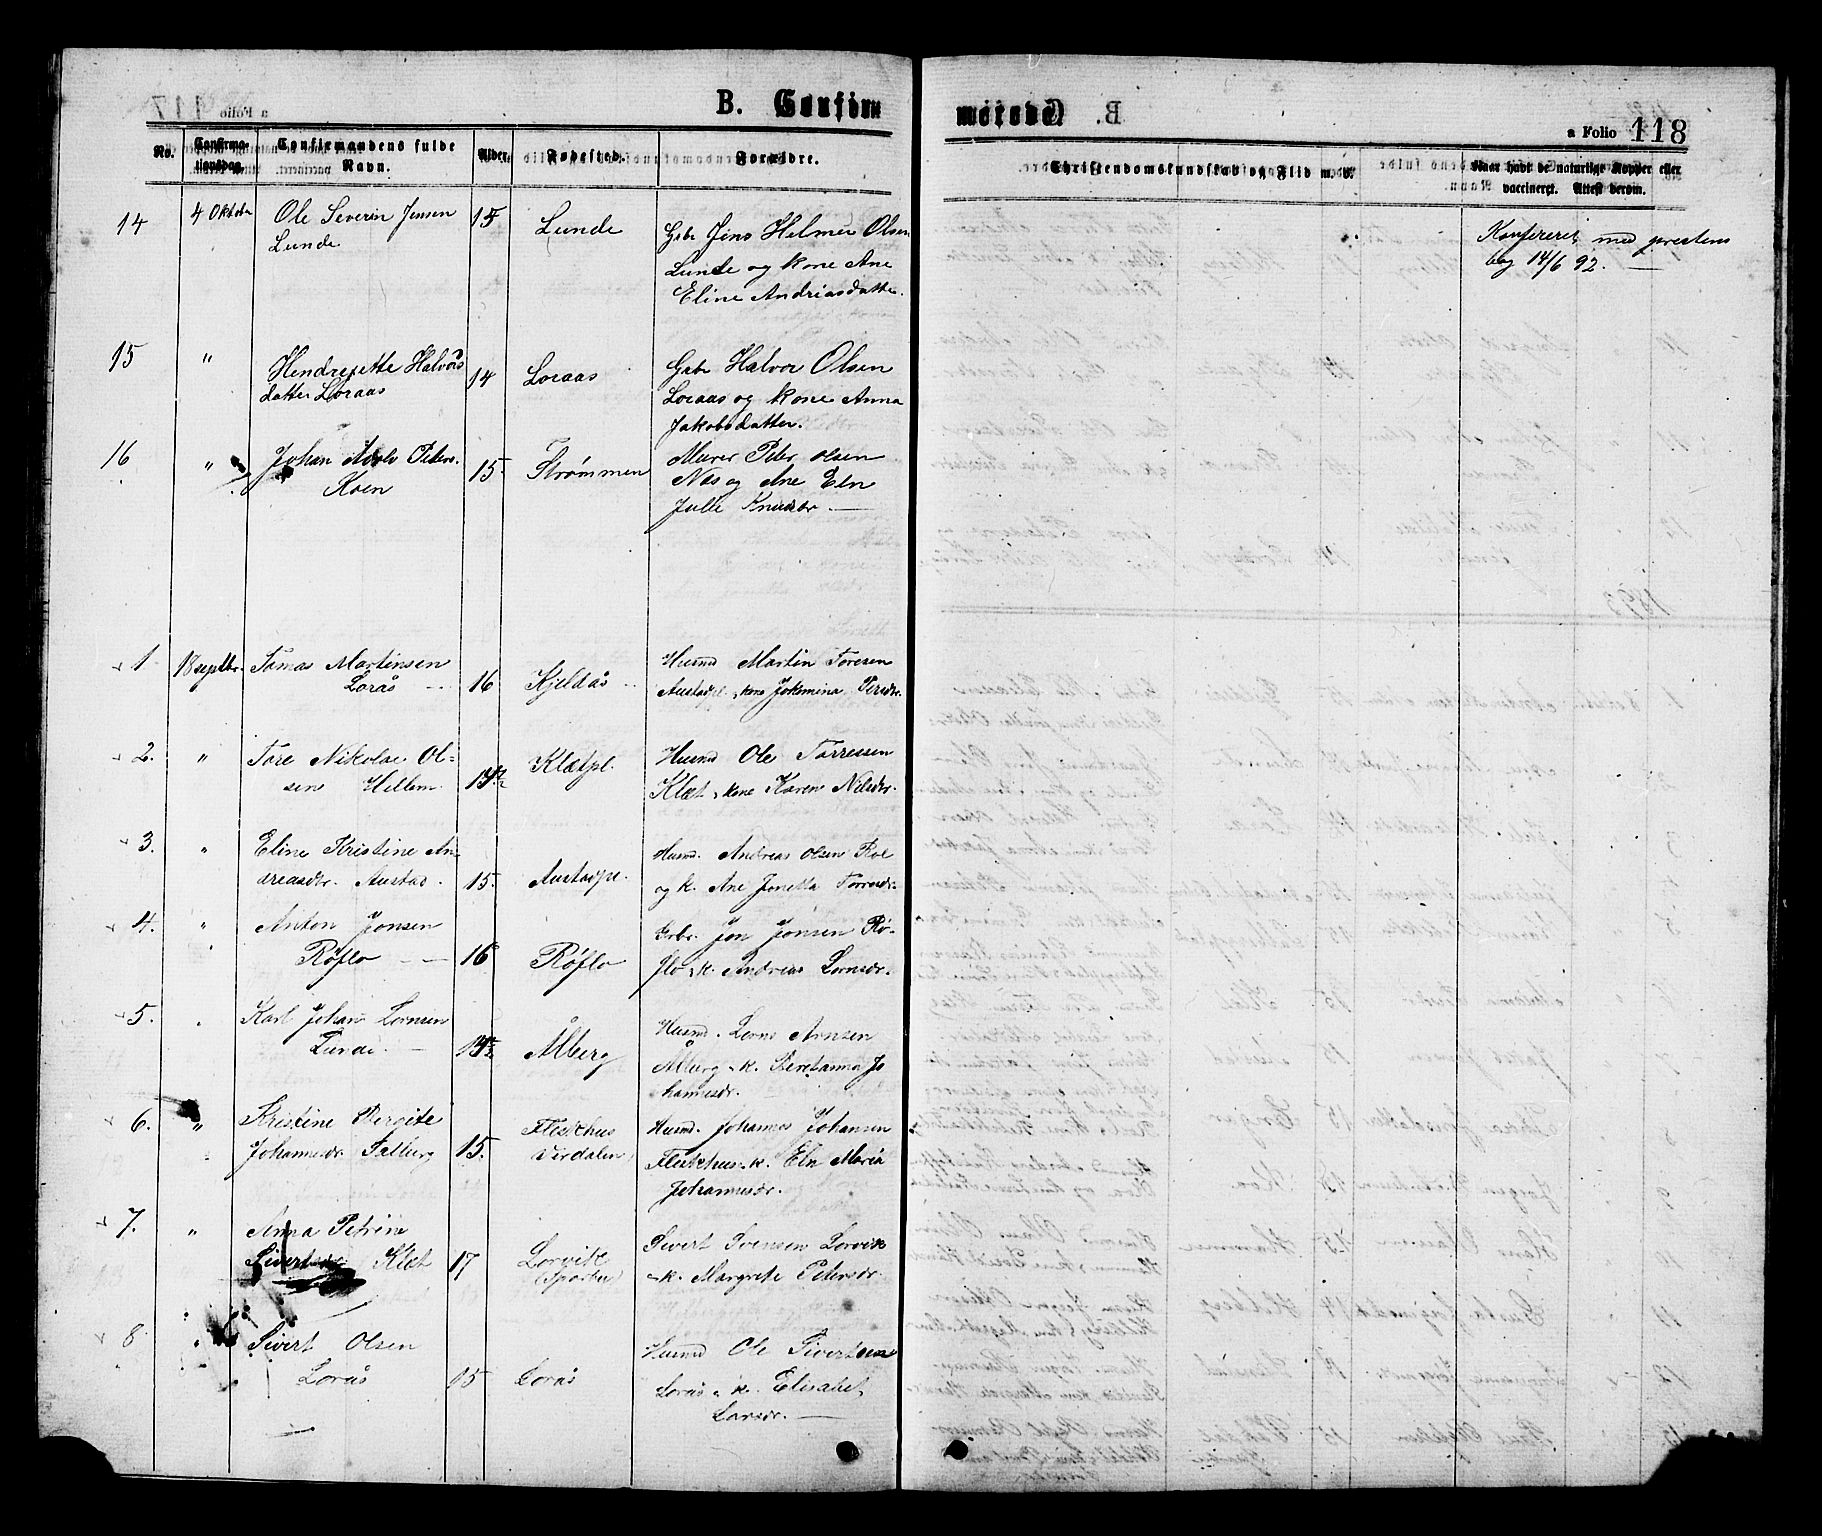 B. Confirm
merede.
a Folio 118
No.
Confirma-
tionsdag.
Confirmandens fulde
Navn.
Alder.
Fødested.
Forældre.
Christendomskundskab og Flid m. v.
Naar havt de naturlige Kopper eller
vaccineret. Attest derom.
14
4 Oktobr
Ole Severin Jensen
Lunde
15
Lunde
Gbr Jens Helmer Olsen
Lunde og kone Ane
Eline Andriasdatter.
Konfereret med prestens
bog 14/6 92. —
15
"
Halvors
datter Loraas
14
Loraas
Gbr Halvor Olsen
Loraas og kone Anna
Jakobsdatter.
16
"
Johan Adolv Peters.
15.
Strømmen
Murer Peter Olsen
Næs og Ane Eln
Julle Knudsdr. —
1.
18 septbr.
Tomas Martinsen
Lorås
16
Kjeldås
Husmd Martin Toresen
Austadpl. kone Jokumina Persdr.
2.
"
Tore Nikolae Ol-
sen Hellem
Klætpl.
Husmd Ole Torressen
Klæt kone Karen Nilsdr.
3.
"
Eline Kristine An-
dreasdr. Austad.
15.
Austadpl.
Husmd. Andreas Olsen Roe
og k. Ane Jonetta Torresdr.
4.
"
Anton Jonsen
Røflo
16
Røflo
Grbr. Jon Jonsen Rø-
flo k. Andreas Lornsdr.
5.
"
Karl Johan Lornsen
Lunde.
Ålberg
Husmd. Lorns Arntsen
Ålberg k. Beretanna Jo
hannesdr.
6.
"
Kristine Bergite
Johannesdr Salberg
15.
Flekhus
Verdalen
Husmd. Johannes Johansen
Flekhus k. Eln Maria
Johannesdr.
7.
"
Anna Petrine
Klæt
17
Lorvik
(Sparbu)
Sivert Svensen Lorvik
k. Margrete Petersdr.
8.
"
Sivert Olsen
Lorås
15
Lorås
Husmd Ole Sivertsen
Lorås k. Elisabet
Larsdr. —